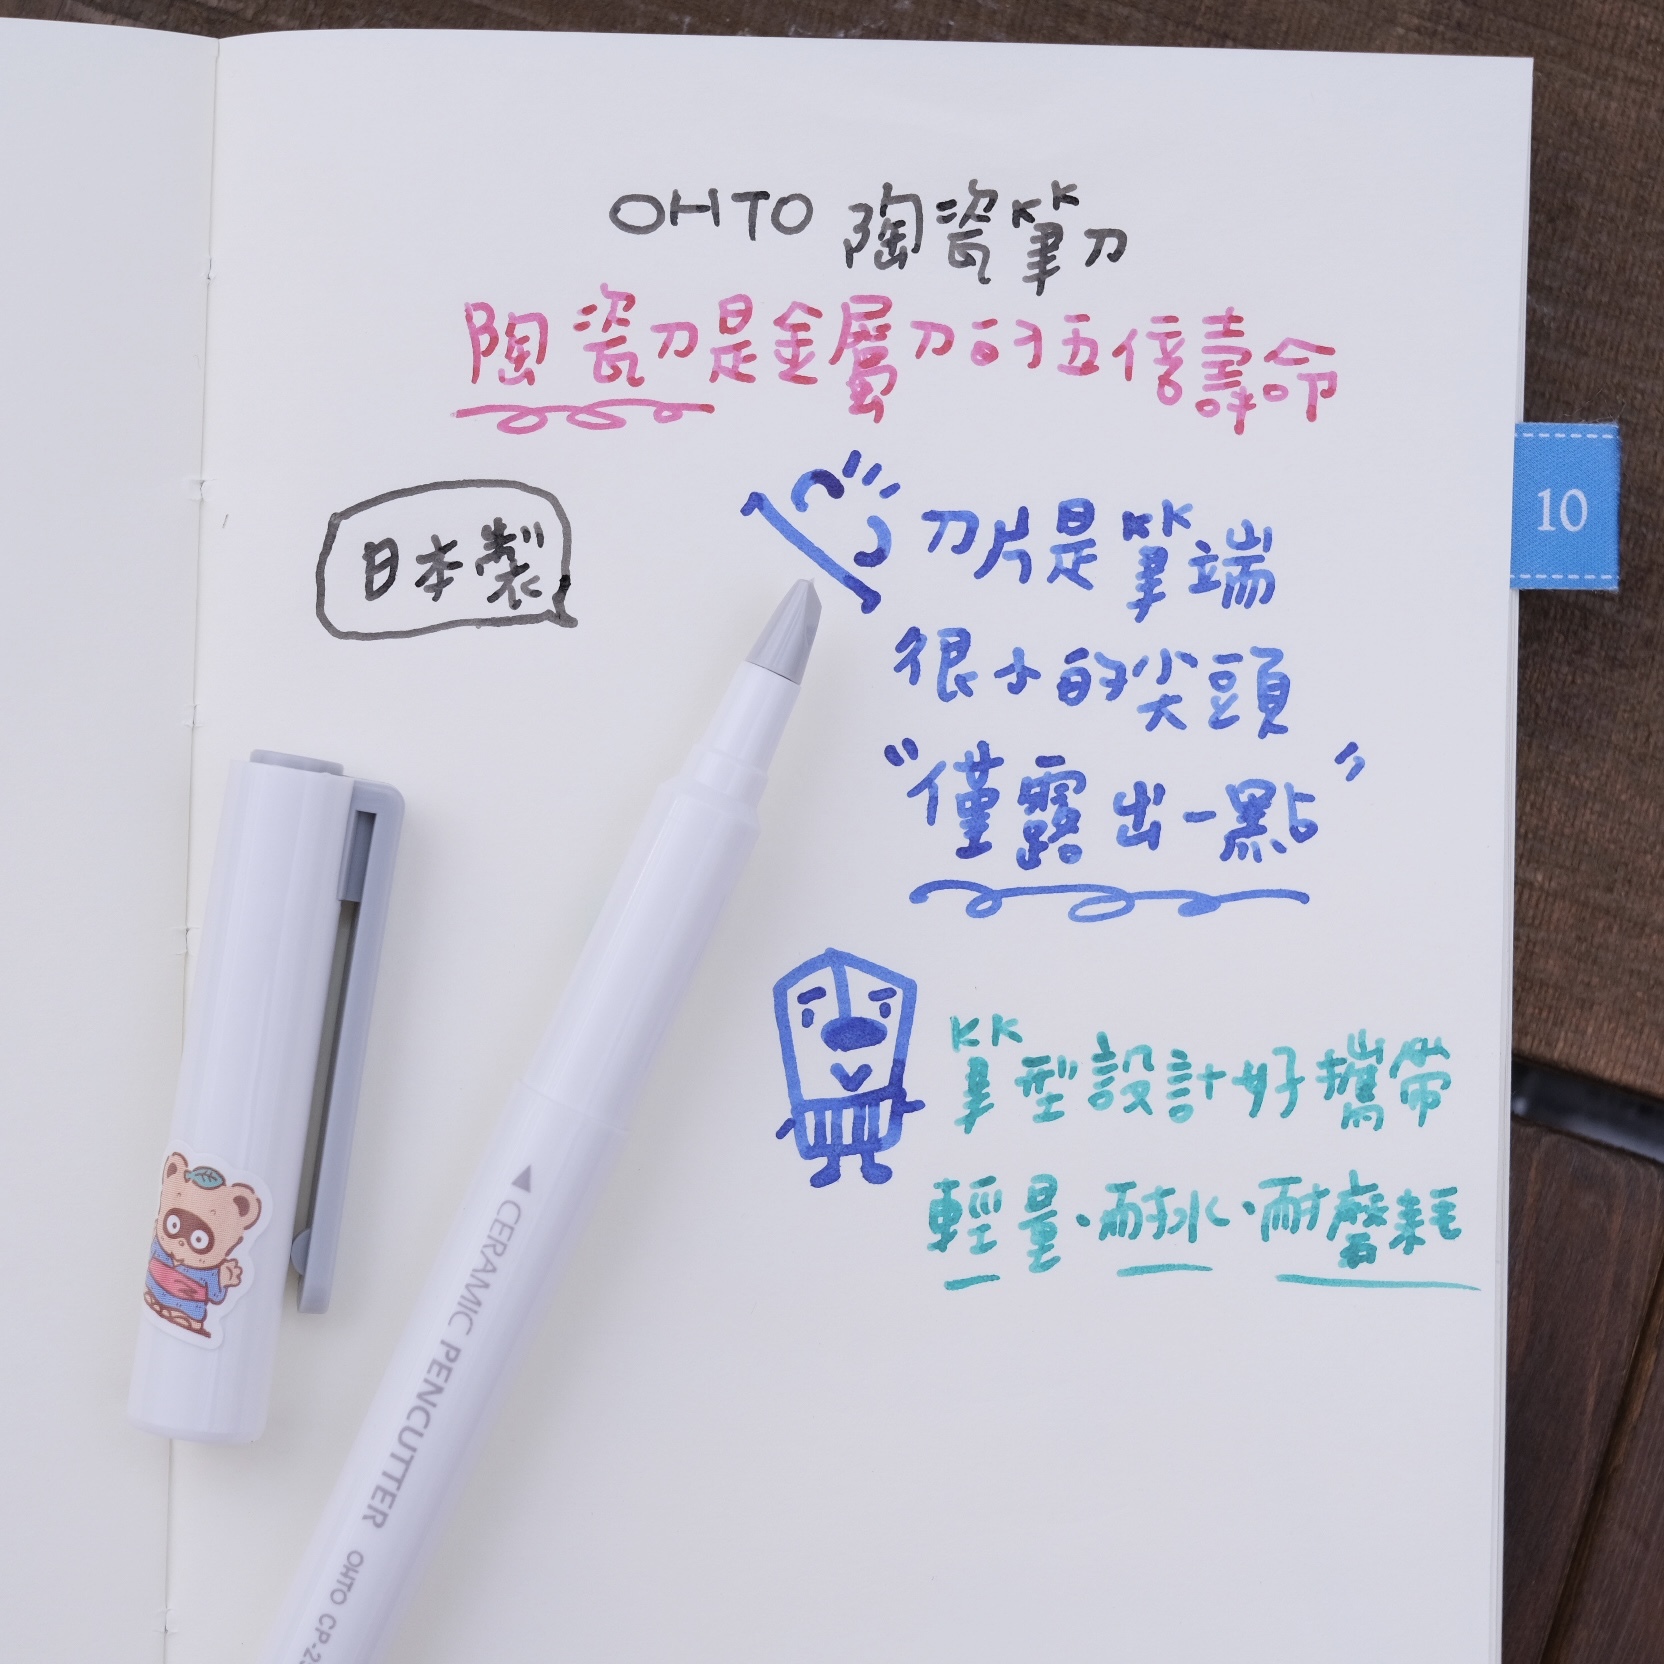 OHTO 陶瓷筆刀
陶瓷刀是金屬刀的五倍壽命
日本製
刀片是筆端
很小的尖頭
“僅露出一點”
筆型設計好攜帶
輕量·耐水·耐磨耗
10
CERAMIC PENCUTTER OHTO CP-2